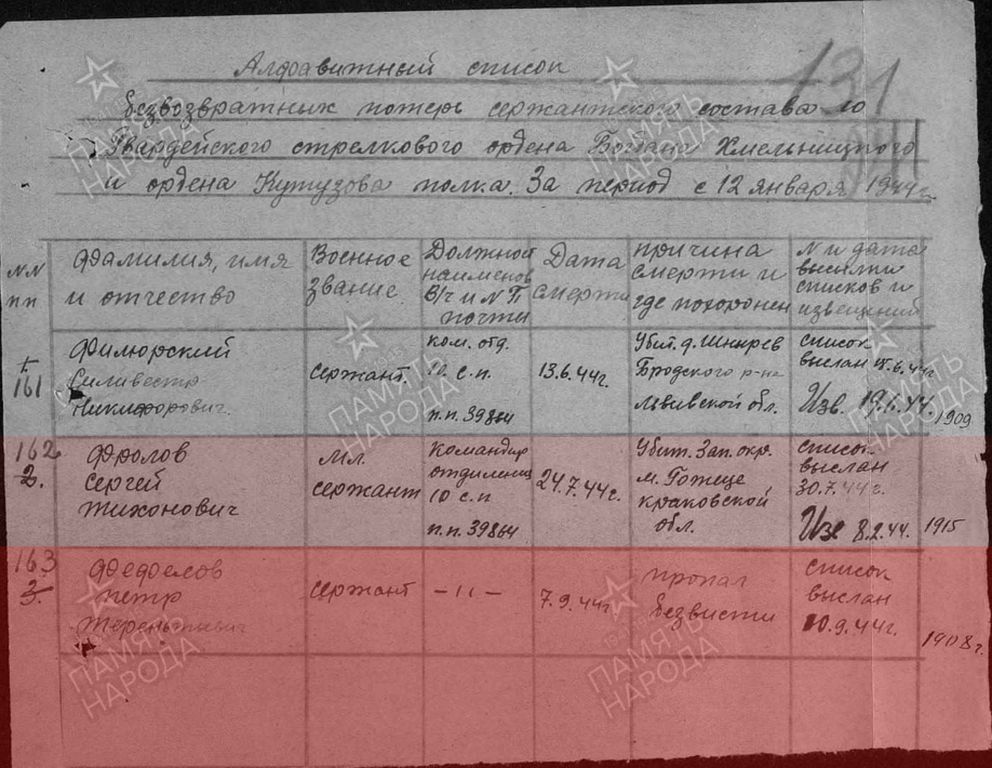 131
Алфавитный список
безвозвратных потерь сержантского состава 10
Гвардейского стрелкового ордена Богдана Хмельницкого
и ордена Кутузова полка. За период с 12 января 1944 г.
NN пп
Фамилия, имя и отчество
Военное звание
Должност наименов В/ч и N П почты
Дата смерти
причина смерти и где похоронен
N и дата высылки списков и извещений
1. 161
Филюрский Силивестр Никифорович
сержант.
ком. отд. 10 с.п. п.п. 39864
13.6.44г.
Убит. д. Шнырев Бродского р-на Львивской обл.
список выслан 15.6.44г. Изв. 19.6.44.
1909
162 2.
Фролов Сергей Тихонович
мл. сержант
командир отделения 10 с.п п.п. 39864
24.7.44г.
Убит. Зап. окр. м. Гожеце краковской обл.
список выслан 30.7.44г. Изв 8.2.44.
1915
163 3.
Фефелов петр Терентьевич
сержант
—"—
7.9.44г
пропал безвисти
список выслан 10.9.44г.
1908г.
ПАМЯТЬ НАРОДА
ПАМЯТЬ НАРОДА
ПАМЯТЬ НАРОДА
ПАМЯТЬ НАРОДА
ПАМЯТЬ НАРОДА
ПАМЯТЬ НАРОДА